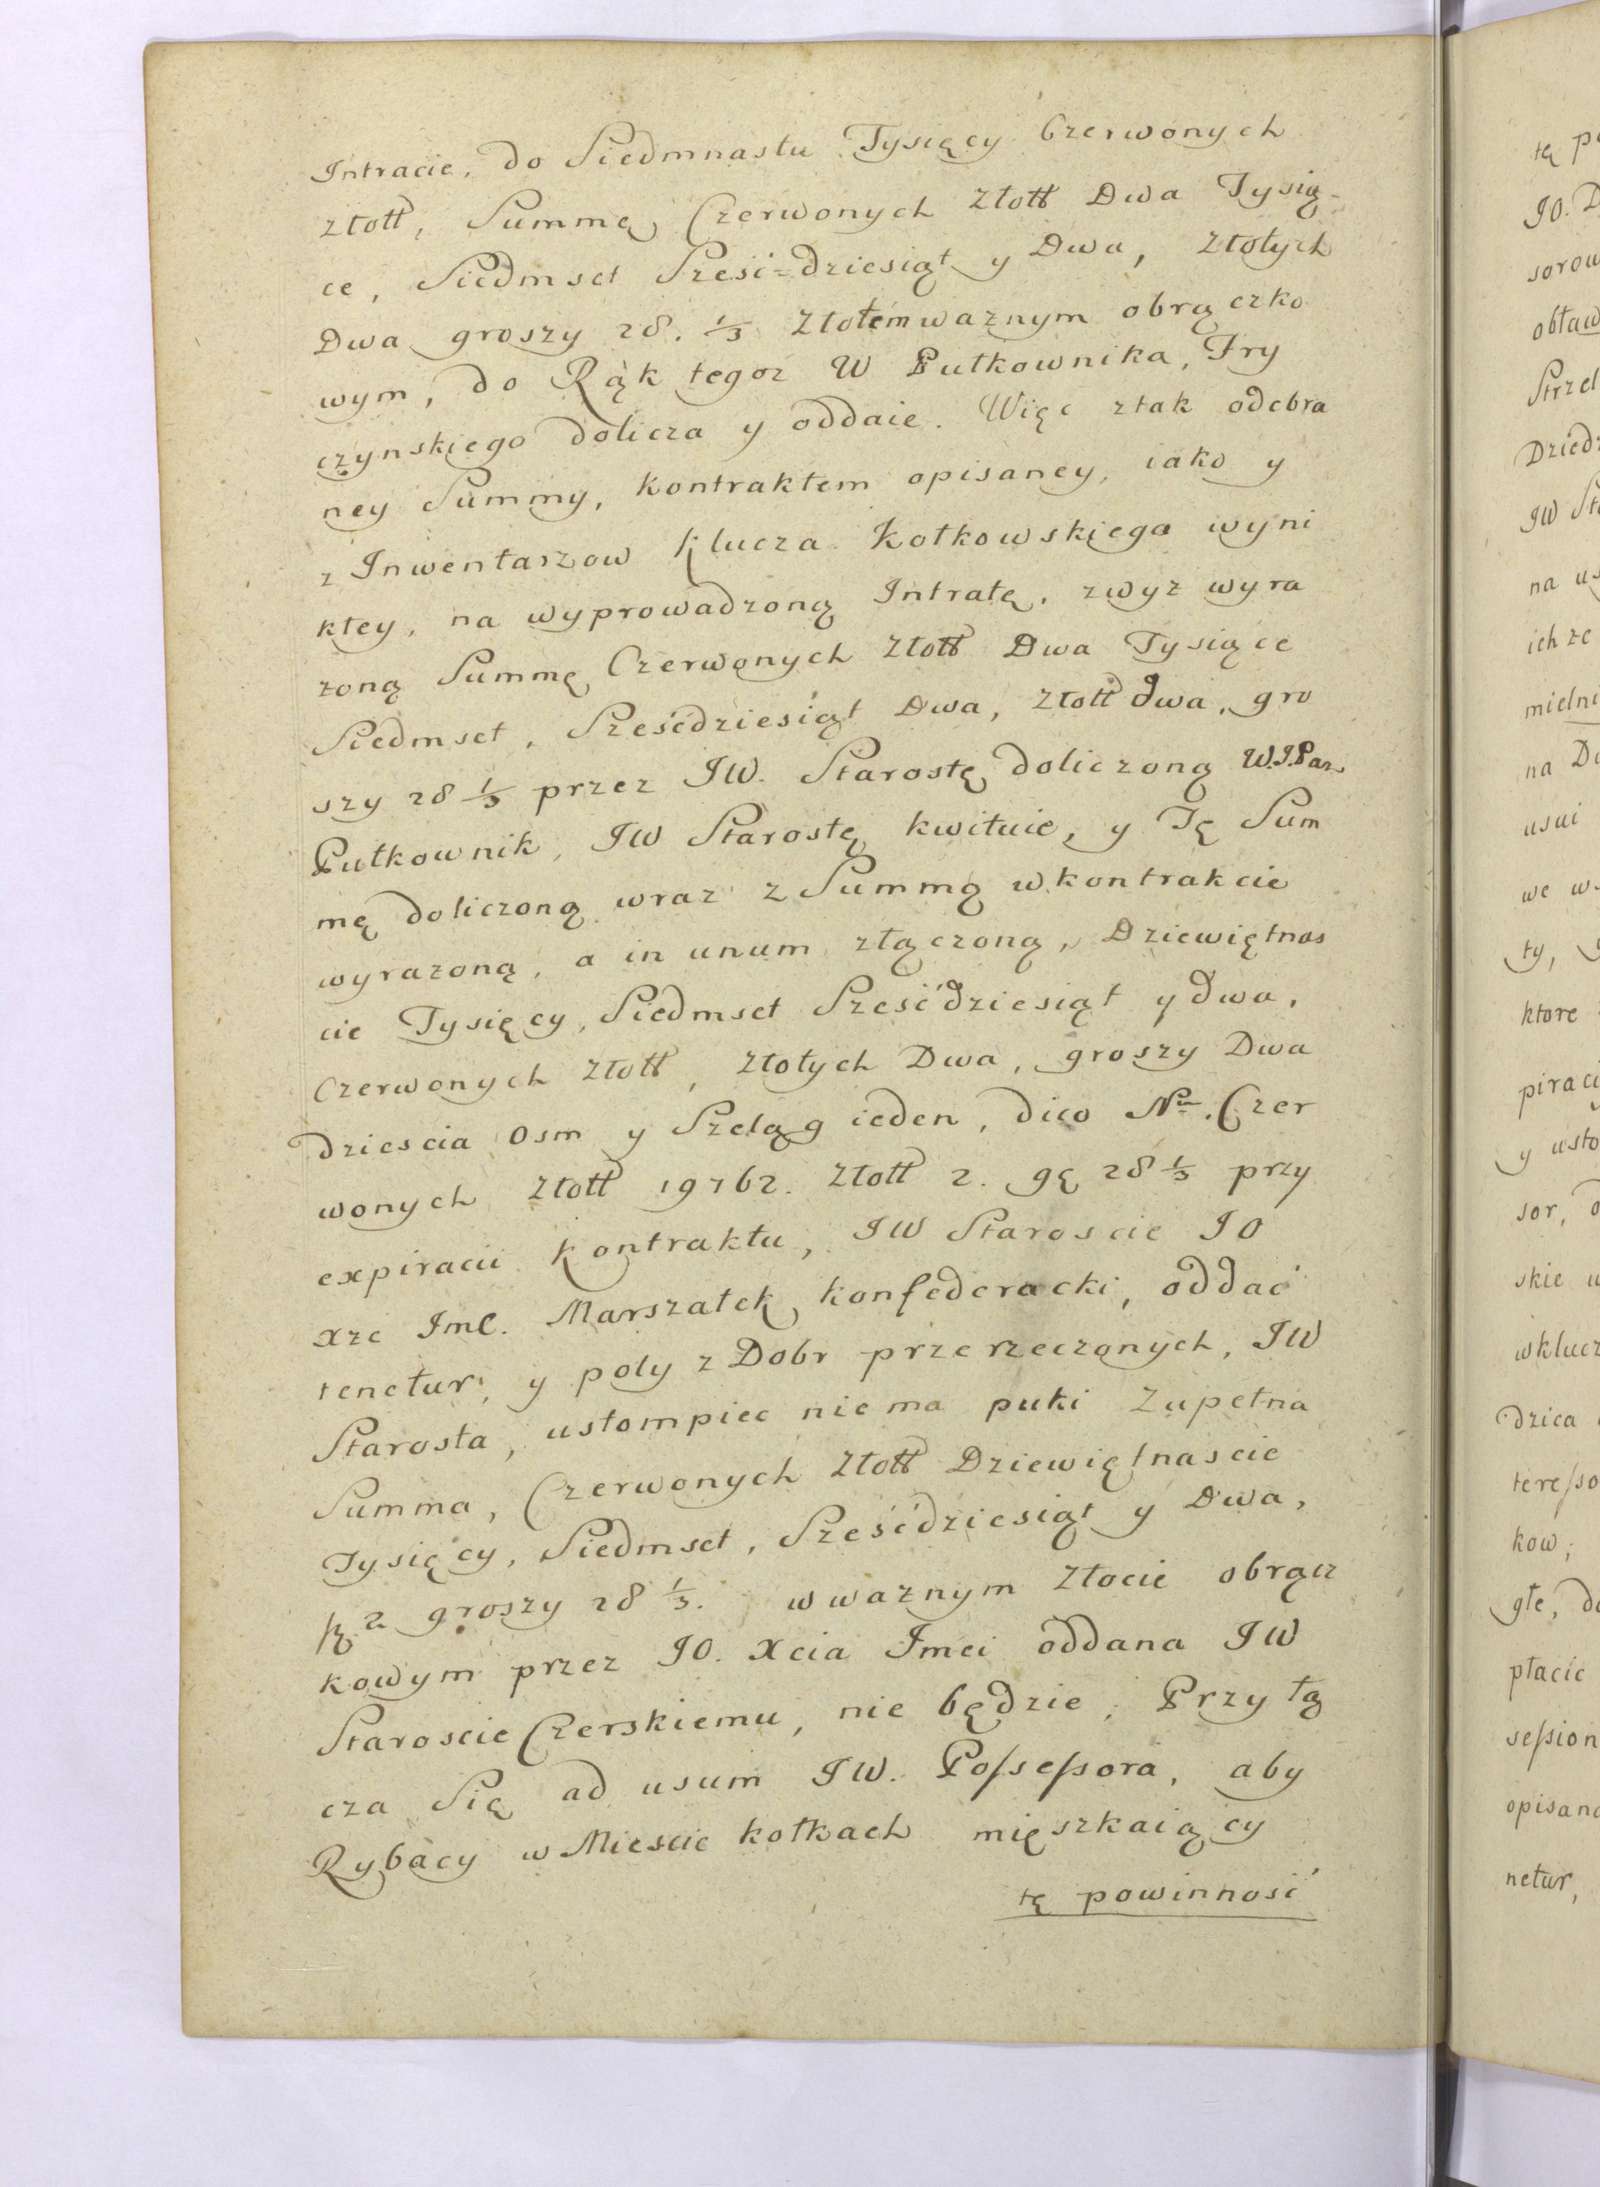 Intracie, do Siedmnastu Tysięcy Czerwonych
złott, Summę Czerwonych Złott Dwa Tysią-
ce, Siedmset Sześć=dziesiąt y Dwa, Złotych
Dwa groszy 28. 1/3 Złotem waznym obrączko
wym, do Rąk tegoz W Pułkownika, Try
czynskiego dolicza y oddaie. Więc ztak odebra
ney Summy, kontraktem opisaney, iako y
z Inwentarzow Klucza Kołkowskiego wyni
kłey, na wyprowadzoną Intratę, zwyz wyra
zoną Summę Czerwonych Złott Dwa Tysiące
Siedmset, Sześćdziesiąt Dwa, Złott dwa, gro
szy 28 1/3 przez JW. Starostę doliczoną W.J.Pan
Pułkownik, JW Starostę kwituie, y Tę Sum
mę doliczoną wraz z Summą w kontrakcie
wyrazoną, a in unum złączoną, Dziewiętnas
cie Tysięcy, Siedmset Sześćdziesiąt y dwa,
Czerwonych Złott, Złotych Dwa, groszy Dwa
dziescia Osm y Szeląg ieden, dico Nro. Czer
wonych Złott 19762. Złott 2. gę 28 1/3 przy
expiracii kontraktu, JW Staroscie JO
Xze Jmc. Marszałek konfederacki, oddać
tenetur, y poty z Dobr przerzeczonych, JW
Starosta, ustompiec nie ma puki Zupełna
Summa, Czerwonych Złott Dziewiętnascie
Tysięcy, Siedmset, Sześćdziesiąt y Dwa,
2 groszy 28 1/3. w waznym Złocie obrącz
kowym przez JO. Xcia Jmci oddana JW
Staroscie Czerskiemu, nie będzie, Przy łą
cza Się ad usum JW. Possessora, aby
Rybacy w Miescie kołkach mięszkaiący
tę powinność
tę
JO.
sorow
obław
Strzel
Dziedz
JW
na
ich ze
mielni
na
usui
we
ty,
ktore
piraci
y usto
sor,
skie
wklucz
dzica
teresso
kow;
głe,
płacic
session
opisan
netur,